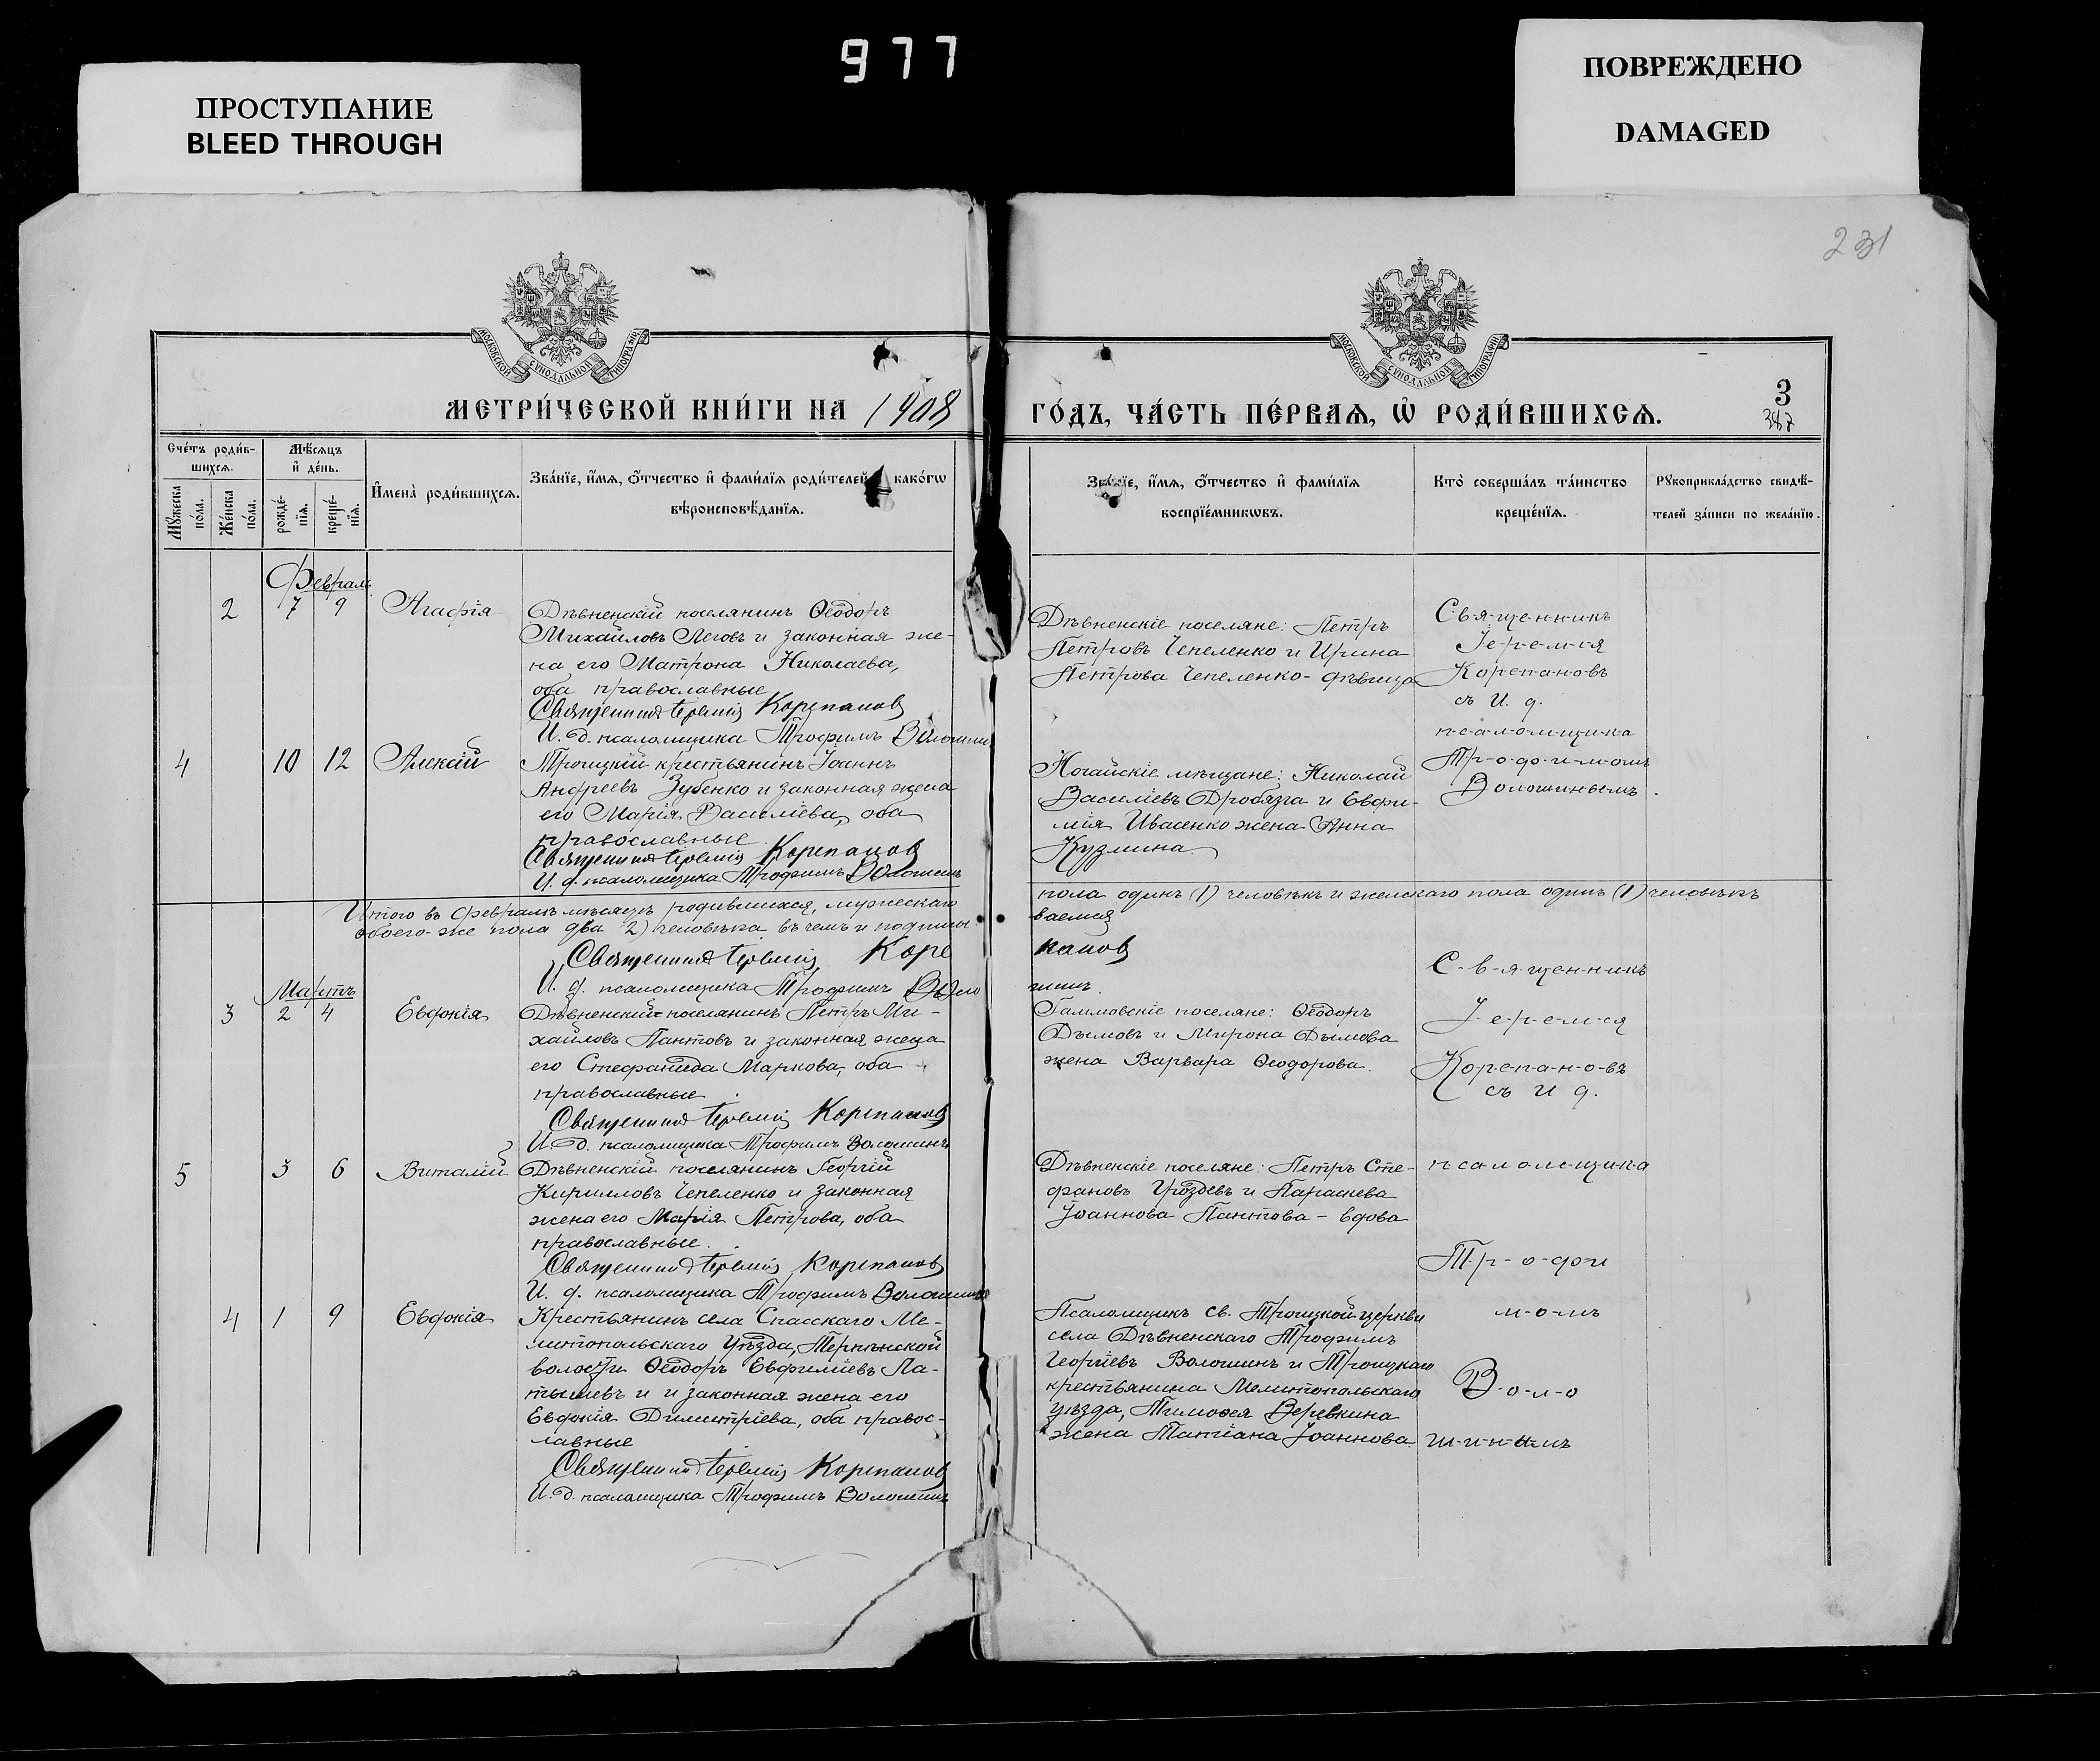 977
ПРОСТУПАНИЕ
BLEED THROUGH
ПОВРЕЖДЕНО
DAMAGED
231
МОСКОВСКОЙ СѴНОДАЛЬНОЙ ТИПОГРАФІИ
МОСКОВСКОЙ СѴНОДАЛЬНОЙ ТИПОГРАФІИ
МЕТРИ́ЧЕСКОЙ КНИ́ГИ НА 1908
ГО́ДЪ, ЧА́СТЬ ПЕ́РВАѦ, Ѡ҆ РОДИ́ВШИХСѦ.
3
387
Сче́тъ роди́вшихсѧ.
Мꙋ́жеска по́ла.
Же́нска по́ла.
Мѣ́сѧцъ и҆ де́нь.
рожде́нїѧ.
креще́нїѧ.
И҆мена̀ роди́вшихсѧ.
Зва́нїе, и҆́мѧ, ѻ҆́тчество и҆ фами́лїѧ роди́телей како́гѡ
вѣроисповѣ́данїѧ.
Зва́нїе, и҆́мѧ, ѻ҆́тчество и҆ фами́лїѧ
воспрїе́мникѡвъ.
Кто̀ соверша́лъ та́инство
креще́нїѧ.
Рꙋкоприкла́дство свидѣ́-
телей за́писи по жела́нїю.
Феврал.
2 7 9 Агафія
Дѣвненскій поселянинъ Ѳеодоръ
Михайловъ Леговъ и законная же-
на его Матрона Николаева,
оба православные
Священникъ Іеремія Корепановъ
И. д. псаломщика Трофимъ Волошинъ
Дѣвненскіе поселяне: Петръ
Петровъ Чепеленко и Ирина
Петрова Чепеленко - дѣвица
С-в-я-щ-е-н-н-и-къ
Іе-р-е-м-і-я
Корепа-н-о-въ
съ И. д.
п-с-а-л-о-м-щ-и-к-а
Тр-о-ф-и-м-омъ
Волошинымъ.
4 10 12 Алексій
Троицкій крестьянинъ Іоаннъ
Андреевъ Зубенко и законная жена
его Марія Васильева, оба
православные
Священникъ Іеремія Корепановъ
И. д. псаломщика Трофимъ Волошинъ
Ногайскіе мѣщане: Николай
Василіевъ Дробязга и Евфи-
мія Ивасенко жена Анна
Кузмина
Итого въ Февралѣ мѣсяцѣ родившихся, мужескаго пола одинъ (1) человѣкъ и женскаго пола одинъ (1) человѣкъ
обоего-же пола два (2) человѣка въ чемъ и подписываемся
Священникъ Іеремія Корепановъ
И. д. псаломщика Трофимъ Волошинъ.
Мартъ
3 2 4 Евдокія
Дѣвненскій поселянинъ Петръ Ми-
хайловъ Пантовъ и законная жена
его Стефанида Маркова, оба
православные
Священникъ Іеремія Корепановъ
И. д. псаломщика Трофимъ Волошинъ
Гаммовскіе поселяне: Ѳеодоръ
Дымовъ и Мирона Дымова
жена Варвара Ѳеодорова.
С-в-я-щ-е-н-н-и-къ
І-е-р-е-м-і-я
Коре-п-а-н-о-въ
съ И д.
5 3 6 Виталій
Дѣвненскій поселянинъ Георгій
Кирилловъ Чепеленко и законная
жена его Марія Петрова, оба
православные.
Священникъ Іеремія Корепановъ
И. д. псаломщика Трофимъ Волошинъ
Дѣвненскіе поселяне: Петръ Сте-
фановъ Гроздевъ и Параскева
Іоаннова Пантова - вдова
п-с-а-л-о-м-щ-и-к-а
Т-р-о-ф-и
м-о-мъ
4 1 9 Евдокія
Крестьянинъ села Спасскаго Ме-
литопольскаго уѣзда, Терпѣнской
волости Ѳеодоръ Евфиміевъ Ла-
тышевъ и и законная жена его
Евдокія Димитріева, оба правос-
лавные
Священникъ Іеремія Корепановъ
И. д. псаломщика Трофимъ Волошинъ
Псаломщикъ св. Троицкой церкви
села Дѣвненскаго Трофимъ
Георгіевъ Волошинъ и Троицкаго
крестьянина Мелитопольскаго
уѣзда, Тимоѳея Веревкина
жена Татіана Іоаннова
В-о-л-о
ш-и-н-ы-мъ